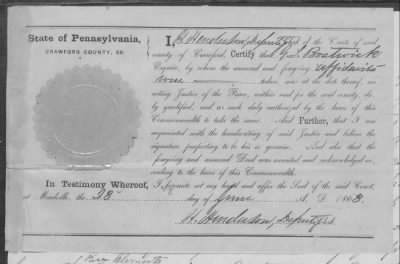 State of Pennsylvania,
CRAWFORD COUNTY, SS:
I, H Henderson, Deputy Clk of the Courts of said
county of Crawford, Certify that G. S. Bostwick
Esquire, by whom the annexed and foregoing affidavits
were taken, was at the date thereof, an
acting Justice of the Peace, within and for said county, du-
ly qualified, and as such duly authorized by the laws of this
Commonwealth to take the same. And Further, that I am
acquainted with the handwriting of said Justice and believe the
signature purporting to be his is genuine. And also that the
foregoing and annexed Deed was executed and acknowledged ac-
cording to the laws of this Commonwealth.
In Testimony Whereof, I hereunto set my hand and affix the Seal of the said Court,
at Meadville, the 28 day of June A. D. 1863.
H. Henderson, Deputy Clk.
Clements